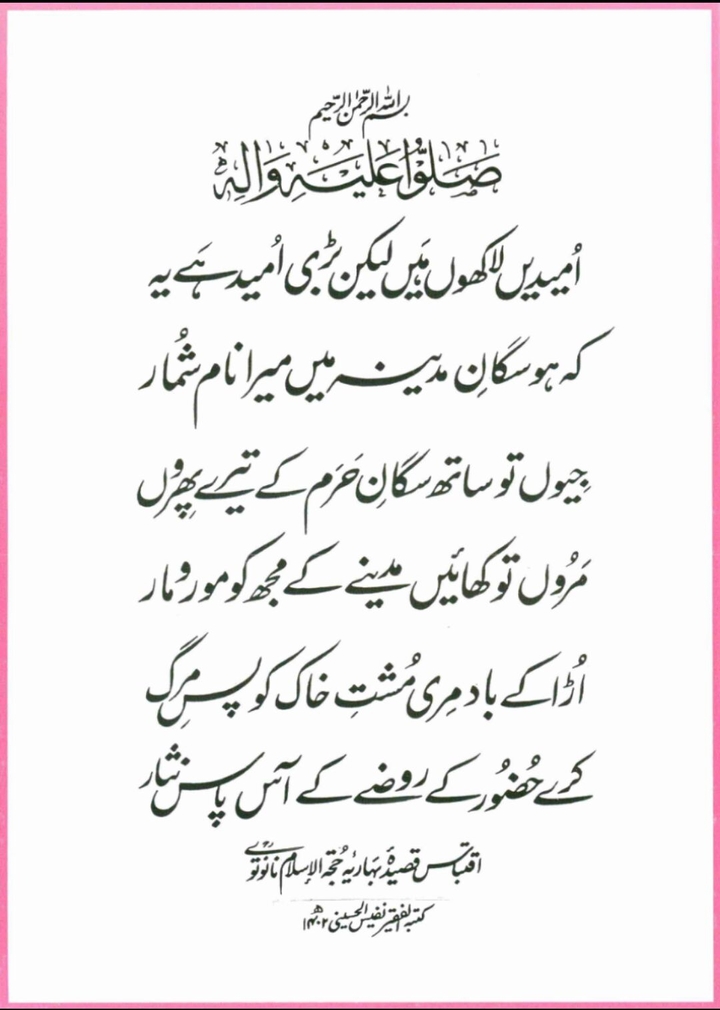 بسم اللہ الرحمٰن الرحیم
صَلُّوْا عَلَیْہِ وَاٰلِہٖ
اُمیدیں لاکھوں ہَیں لیکن بڑی اُمید ہَے یہ
کہ ہو سگانِ مدینہ میں میرا نام شُمار
جِیوں تو ساتھ سگانِ حَرَم کے تیرے پِھروں
مَرُوں تو کھائیں مدینے کے مجھ کو مور و مار
اُڑا کے باد مِری مُشتِ خاک کو پسِ مرگ
کرے حُضُور کے روضے کے آس پاس نثار
اقتباس قصیدۂ بہاریہ حُجۃ الاسلام نانوتوی
کتبہ الفقیر نفیس الحسینی ۱۴۰۲ھ